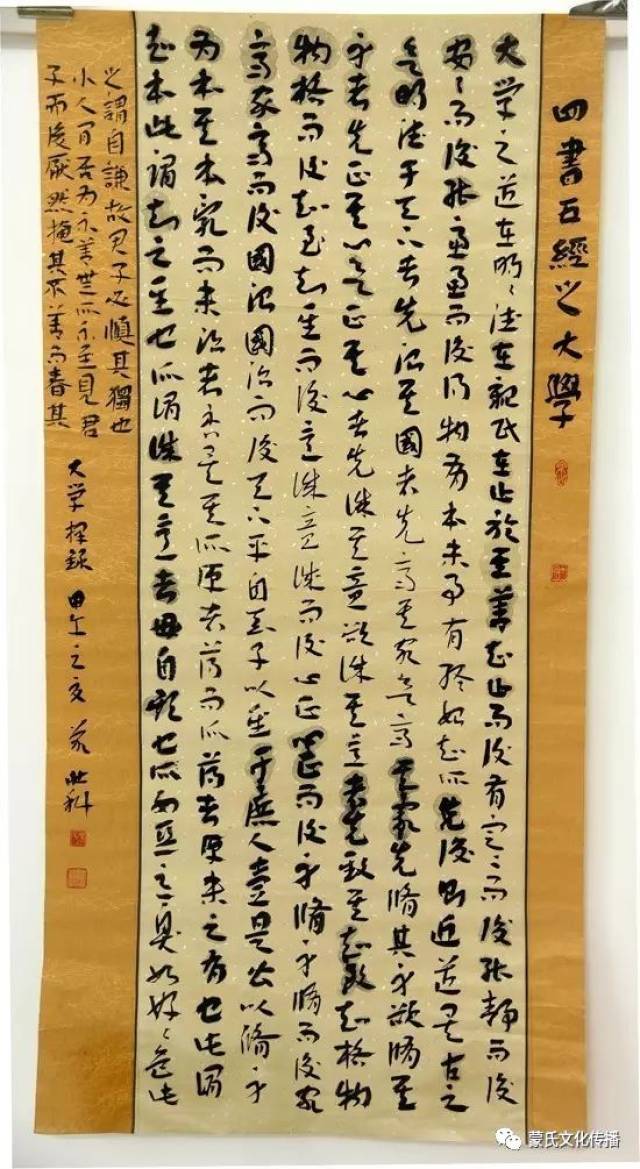 四書五經之大學
大学之道在明々德在親民在止於至善知止而後有定々而後能靜而後
安々而後能慮慮而後得物有本末事有終始知所先後則近道矣古之
欲明德于天下者先治其國者先齊其家欲齊其家先脩其身欲脩其
身者先正其心欲正其心者先誠其意欲誠其意者先致其知致知格物
物格而後知至知至而後意誠意誠而後心正心正而後身脩身脩而後家
齊家齊而後國治國治而後天下平自天子以至于庶人壹是皆以脩身
为本其本亂而末治者否矣其所厚者薄而所薄者厚未之有也此謂
知本此謂知之至也所謂誠其意者毋自欺也所如惡々臭如好々色此
之謂自謙故君子必慎其獨也
小人閒居为不善無所不至見君
子而後厭然掩其不善而著其
大学 甲午之夏 蒙
蒙氏文化传播